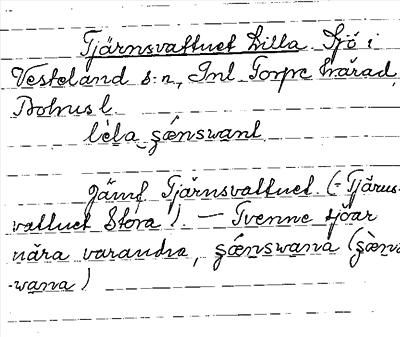 Tjärnsvattnet Lilla Sjö i
Vesteland s:n, Inl Torpe härad,
Bohusl.
lèla
Jämf. Tjärnsvattnet (= Tjärns-
vattnet Stora). — Tvenne sjöar
nära varandra,